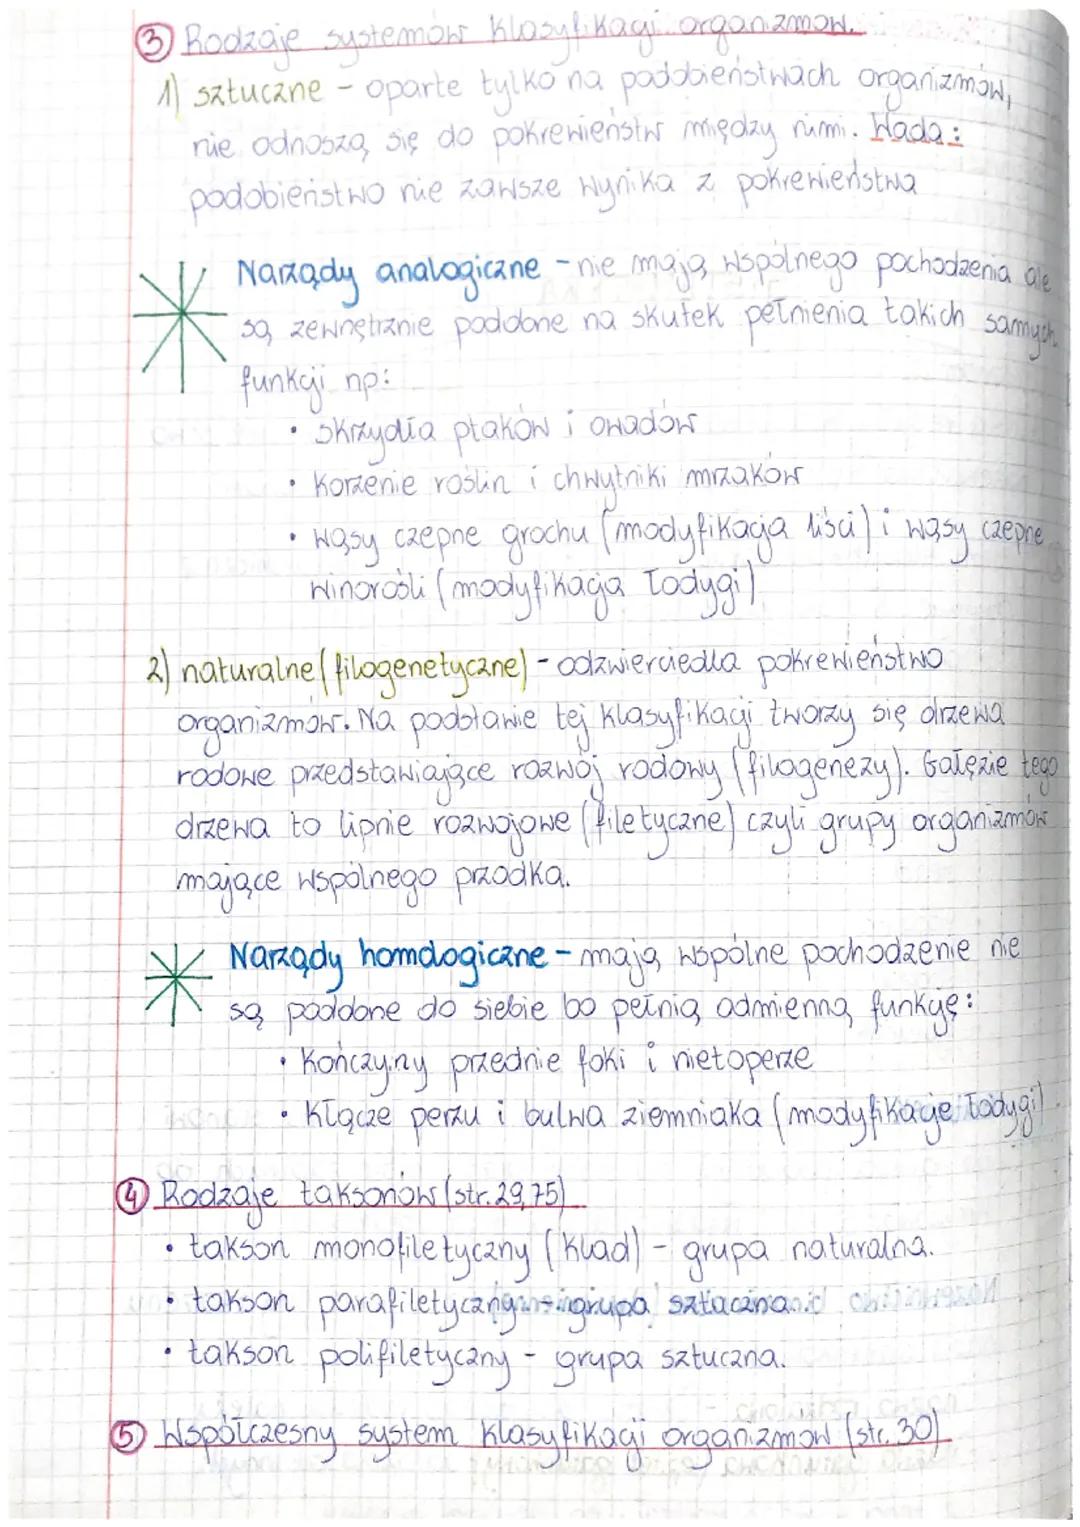 ③ Rodzaje systemów klasyfikacji organizmów.
1) sztuczne - oparte tylko na podobieństwach organizmów,
nie odnoszą się do pokrewieństw między nimi. Wada:
podobieństwo nie zawsze wynika z pokrewieństwa
Narządy analogiczne - nie mają wspólnego pochodzenia ale
są zewnętrznie podobne na skutek pełnienia takich samych
funkcji np:
• skrzydła ptaków i owadów
• korzenie roślin i chwytniki mrzaków
• wąsy czepne grochu (modyfikacja liści) i wąsy czepne
winorośli (modyfikacja łodygi)
2) naturalne (filogenetyczne) - odzwierciedla pokrewieństwo
organizmów. Na podstawie tej klasyfikacji tworzy się drzewa
rodowe przedstawiające rozwój rodowy (filogenezy). Gałęzie tego
drzewa to lipnie rozwojowe (filetyczne) czyli grupy organizmów
mające wspólnego przodka.
Narządy homologiczne - mają wspólne pochodzenie nie
są podobne do siebie bo pełnią odmienną funkcję:
• Kończyny przednie foki i nietoperze
• Kłącze perzu i bulwa ziemniaka (modyfikacje łodygi)
④ Rodzaje taksonów (str. 29,75)
• takson monofiletyczny (klad) - grupa naturalna.
• takson parafiletyczny - grupa sztuczna.
• takson polifiletyczny - grupa sztuczna.
⑤ Współczesny system klasyfikacji organizmów (str. 30)